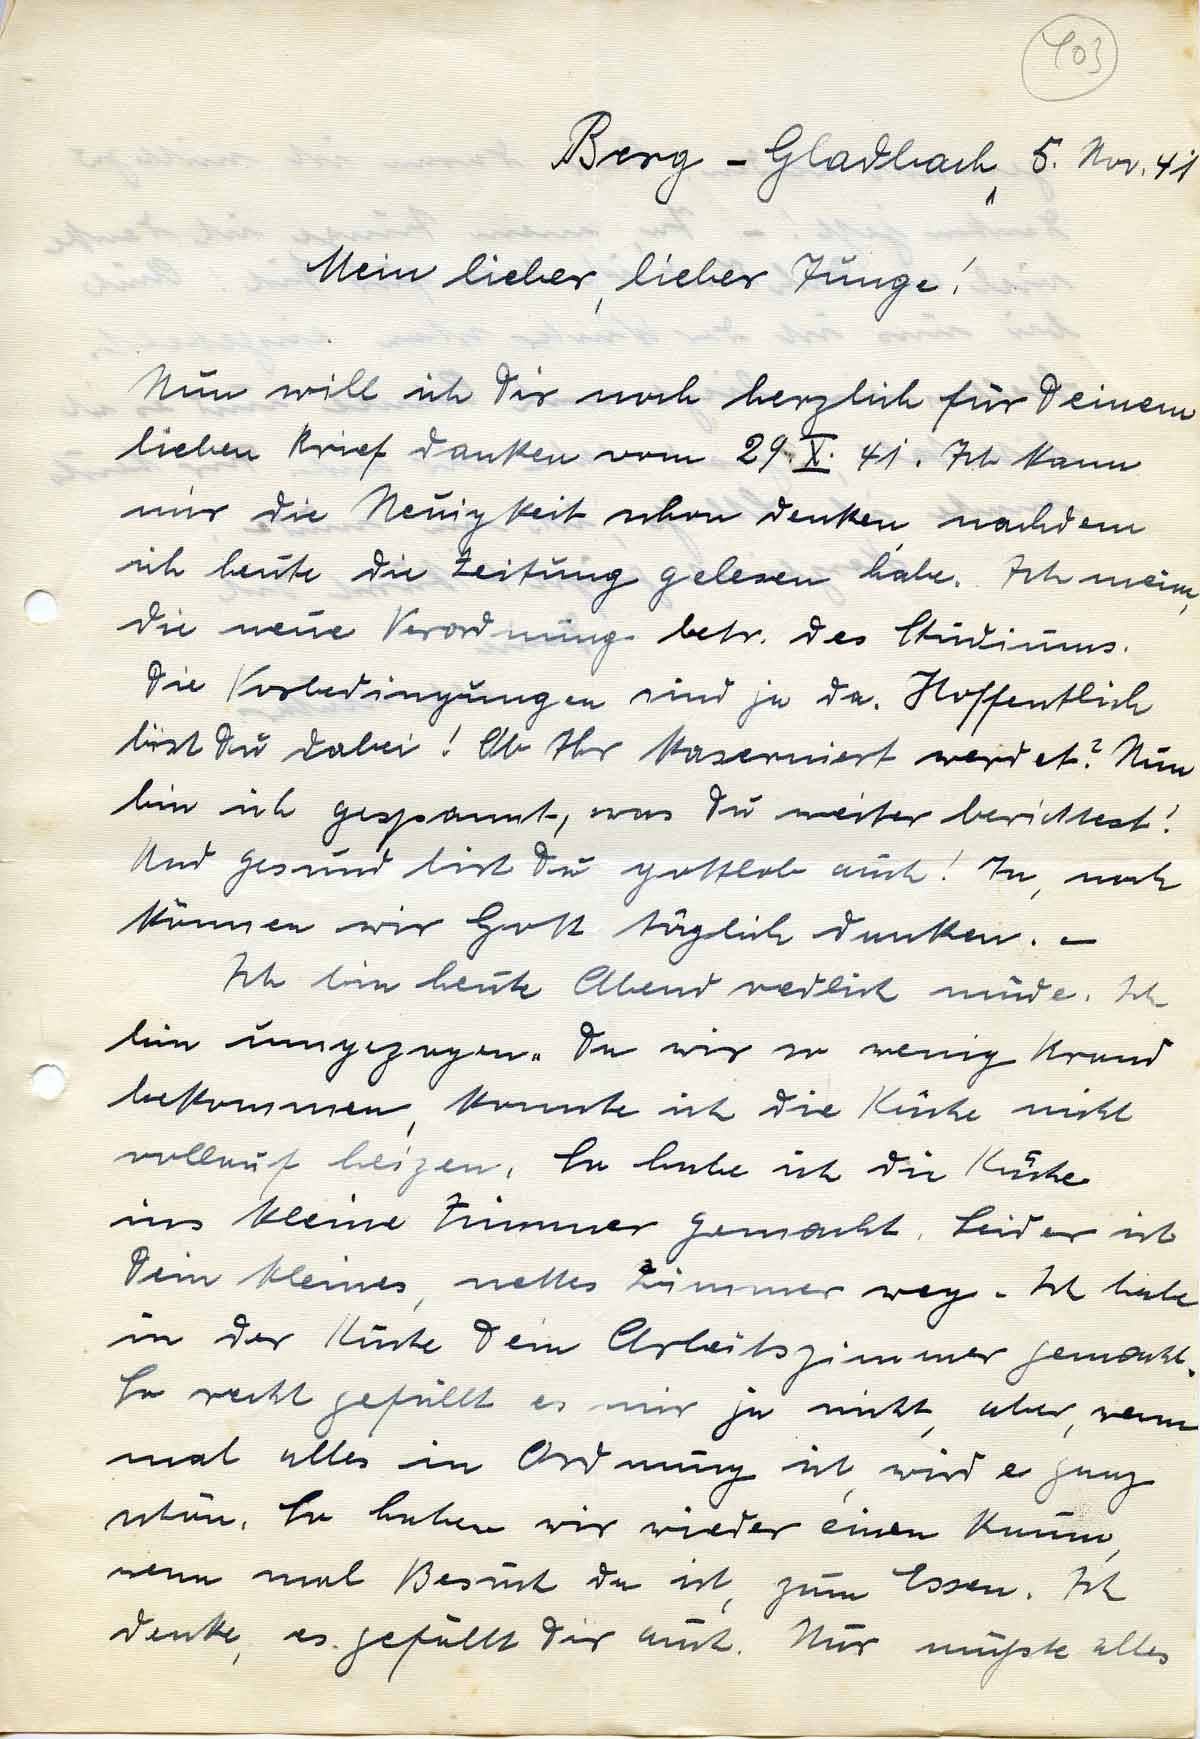 103
Berg-Gladbach, 5. Nov. 41
Mein lieber, lieber Junge!
Nun will ich Dir noch herzlich für Deinen
lieben Brief danken vom 29. X. 41. Ich kann
mir die Neuigkeit schon denken, nachdem
ich heute die Zeitung gelesen habe. Ich mein,
die neue Verordnung betr. des Studiums.
Die Vorbedingungen sind ja da. Hoffentlich
bist Du dabei! Ob Ihr kaserniert werdet? Nun
bin ich gespannt, was Du weiter berichtest!
Und gesund bist Du gottlob auch! Ja, noch
können wir Gott täglich danken. –
Ich bin heute Abend redlich müde. Ich
bin umgezogen. Da wir so wenig Brand
bekommen, konnte ich die Küche nicht
vollauf heizen. So habe ich die Küche
ins kleine Zimmer gemacht. Leider ist
Dein kleines, nettes Zimmer weg. Ich habe
in der Küche Dein Arbeitszimmer gemacht.
So recht gefällt es mir ja nicht, aber, wenn
mal alles in Ordnung ist, wird e ganz
schön. So haben wir wieder einen Raum,
wenn mal Besuch da ist, zum Essen. Ich
denke, es gefällt Dir auch. Nur müßte alles